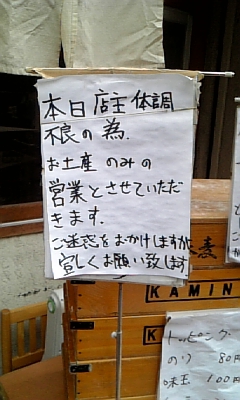 本日店主体調
不良の為.
お土産のみの
営業とさせていただ
きます.
ご迷惑をおかけしますが
宜しくお願い致します.
KAMIN
K
トッピング
のり 80円
味玉 100円